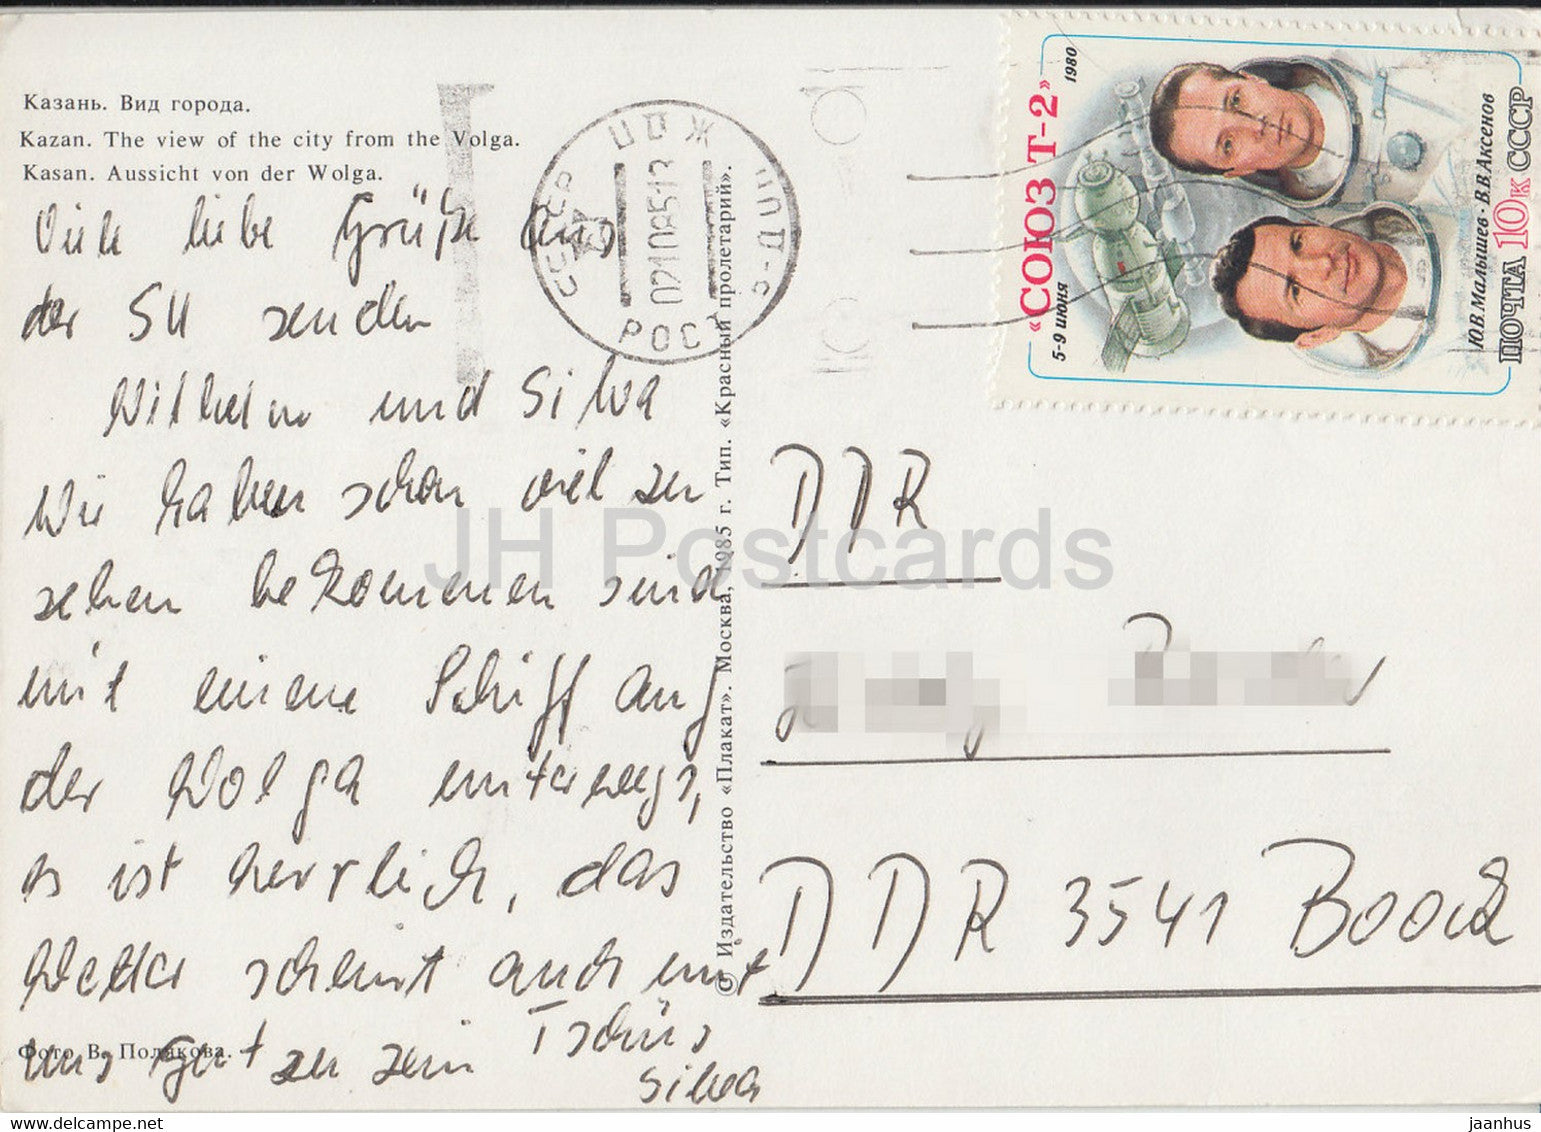 Казань. Вид города.
Kazan. The view of the city from the Volga.
Kasan. Aussicht von der Wolga.
Viele liebe Grüße aus
der SU senden
Wilhelm und Silva
Wir haben schon viel zu
sehen bekommen sind
mit einem Schiff auf
der Wolga unterwegs,
es ist herrlich, das
Wetter scheint auch mit
uns gut zu sein Tschüs
Silva
Фото В. Полякова.
© Издательство «Плакат». Москва, 1985 г. Тип. «Красный пролетарий».
021085-13
РОС
«СОЮЗ Т-2»
5-9 июня 1980
Ю.В.Малышев·В.В.Аксенов
ПОЧТА 10к СССР
DDR
DDR 3541 Boock
JH Postcards
www.delcampe.net
jaanhus